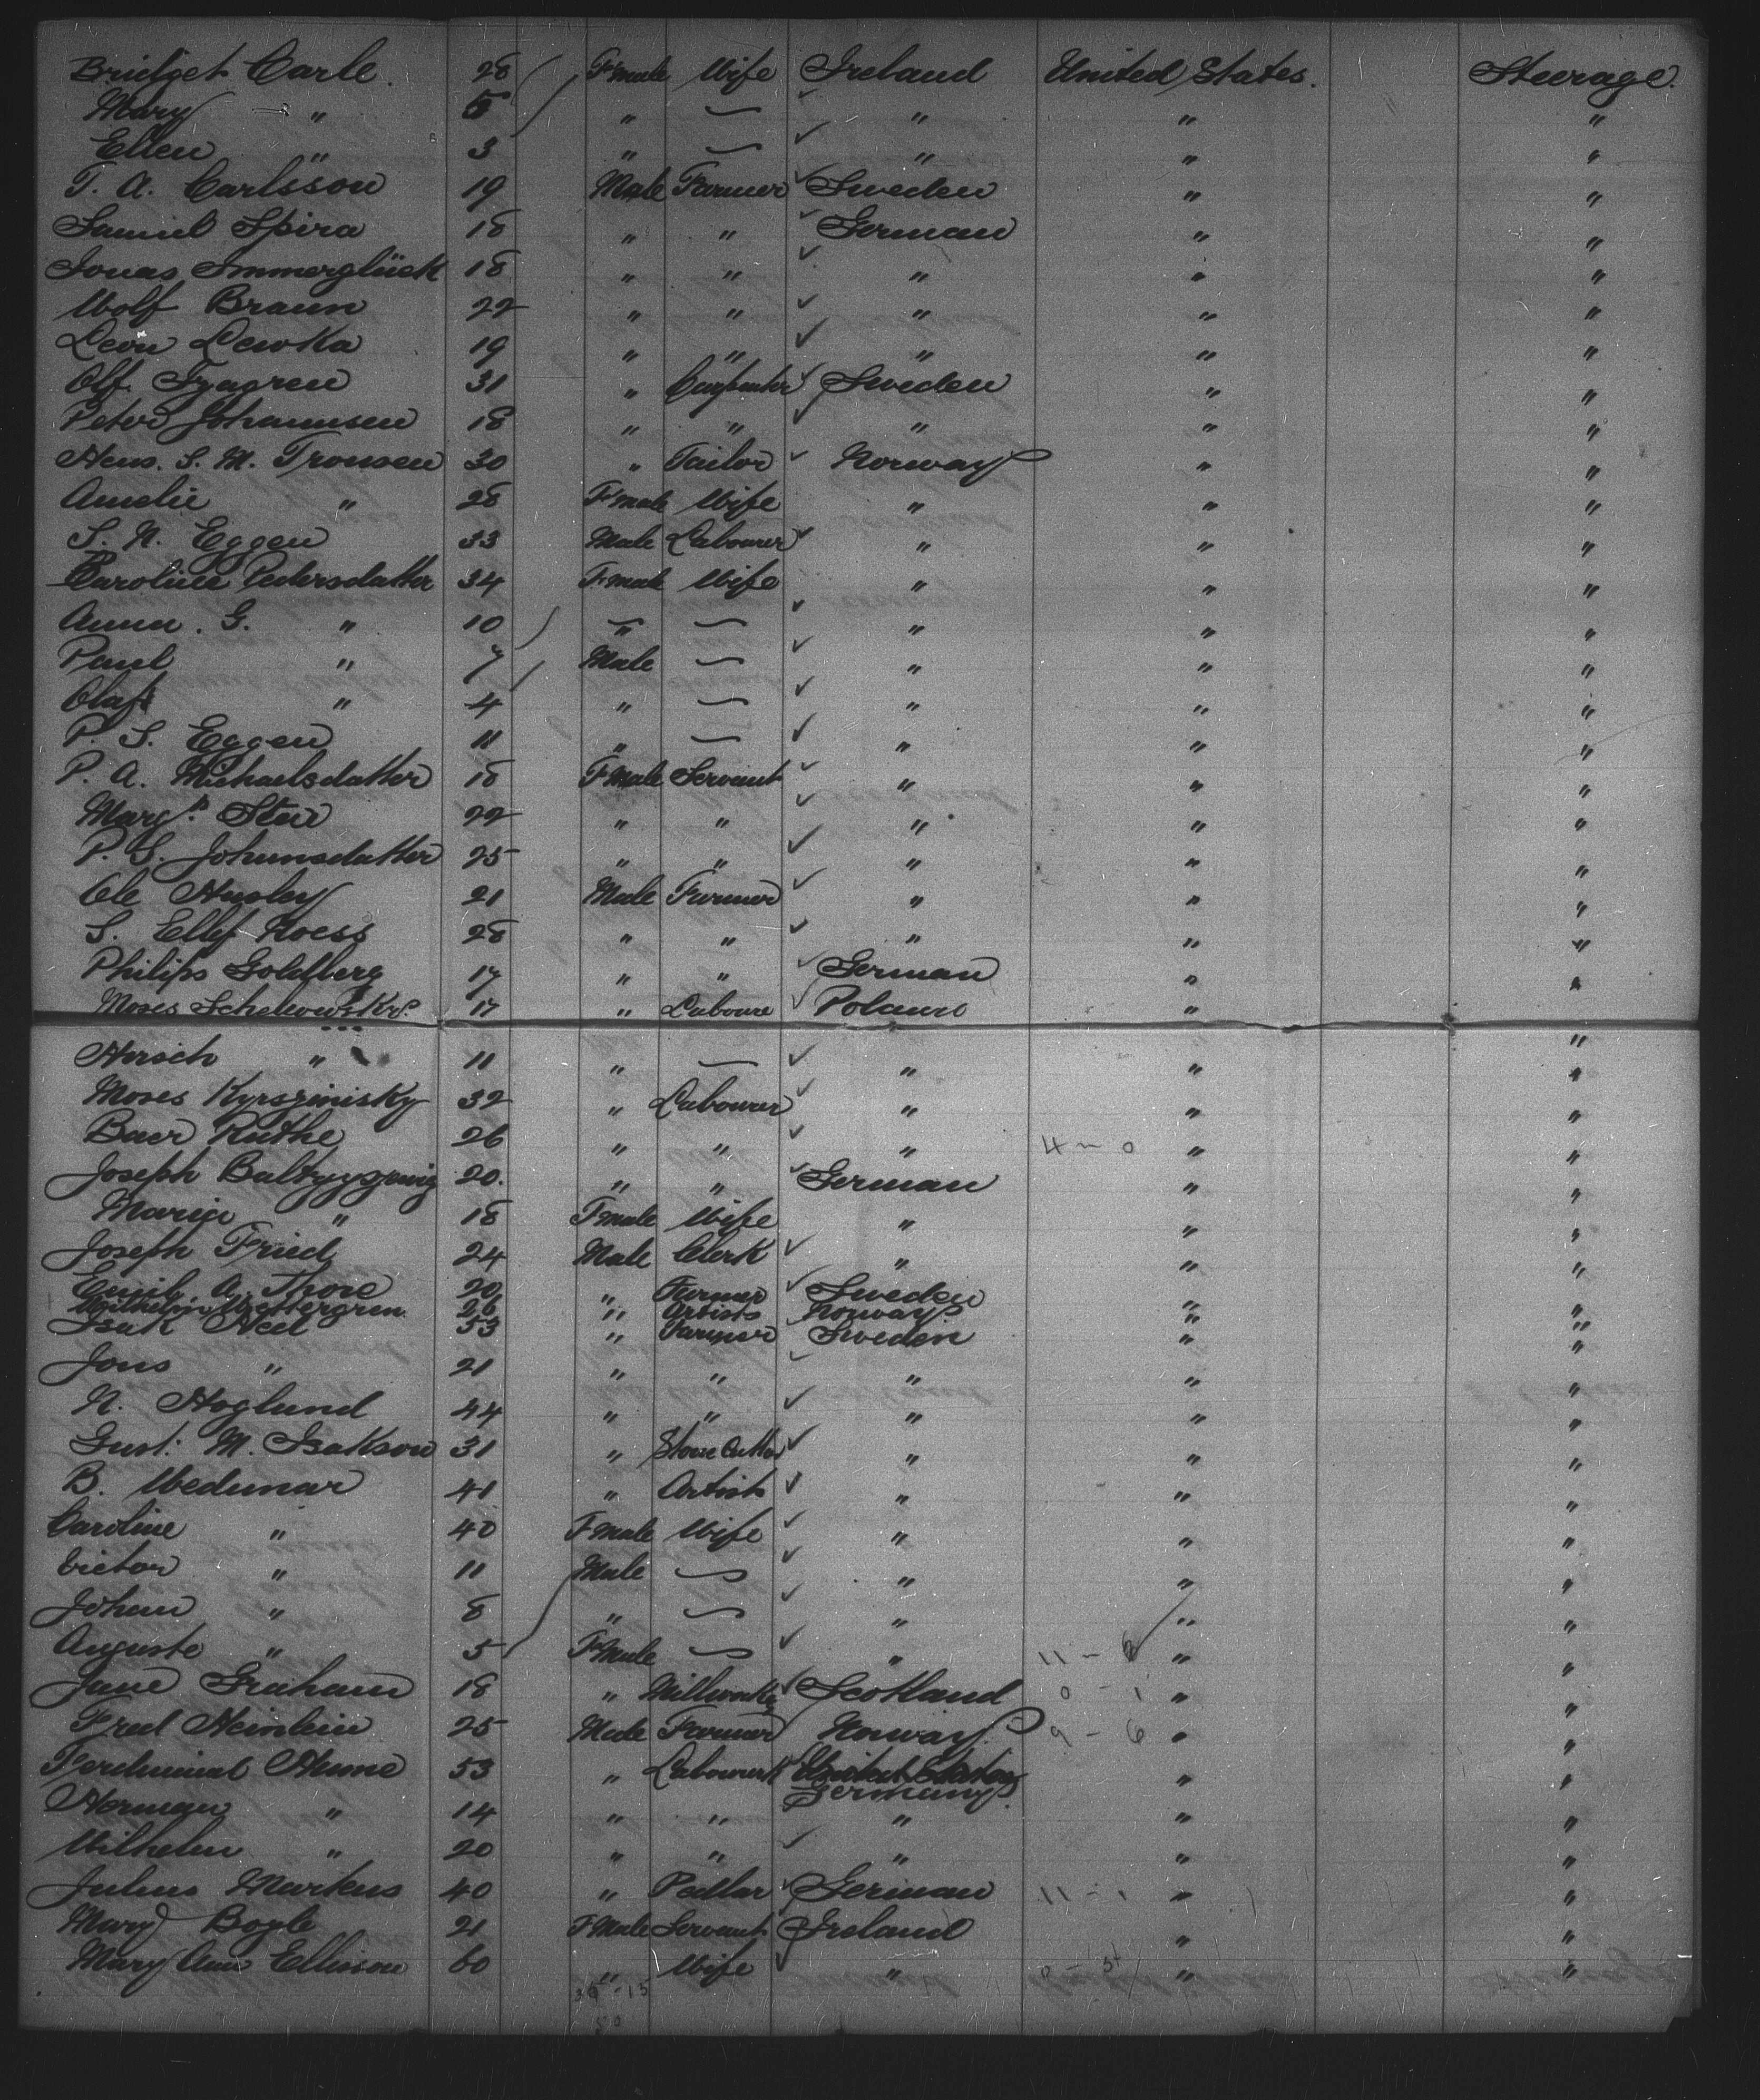 Bridget Carle. 28 F'male Wife Ireland United States. Steerage.
Mary " 5 " — " " "
Ellen " 3 " — " " "
T. A. Carlsson 19 Male Farmer Sweden " "
Samuel Spira 18 " " German " "
Jonas Immerglück 18 " " " " "
Wolf Braun 22 " " " " "
Leon Lewka 19 " " " " "
Olf 31 " Carpenter Sweden " "
Peter Johannsen 18 " " " " "
Hans. S. M. Tronsen 30 " Tailor Norway " "
Amelie " 28 F'male Wife " " "
S. N. Eggen 33 Male Labourer " " "
Caroline Pedersdatter 34 F'male Wife " " "
Anna. G. " 10 " — " " "
Paul " 7 Male — " " "
Olaf " 4 " — " " "
P. S. Eggen 11 " — " " "
P. A. Michaelsdatter 18 F'Male Servant " " "
Marg.t Sten 22 " " " " "
P. G. Johansdatter 25 " " " " "
Ole 21 Male Farmer " " "
S. Ellef 28 " " " " "
Philips Goldberg 17 " " German " "
Moses 17 " Laboure Poland " "
Hersch " 11 " — " " "
Moses 32 " Labourer " " "
Baer Ruthe 26 " " " 4 - 0 " "
Joseph 20. " " German " "
Marija " 18 F'male Wife " " "
Joseph Fried 24 Male Clerk " " "
Emil A. Thore 20 " Farmer Sweden " "
Wilhelm Wettergren 26 " Artists Norway " "
Isak Hed 53 " Farmer Sweden " "
Jons " 21 " " " " "
N. Hoglund 44 " " " " "
Gust. M. Isakson 31 " Stone Cutter " " "
B. Wedmar 41 " Artist " " "
Caroline " 40 F'male Wife " " "
Victor " 11 Male — " " "
Johan " 8 " — " " "
Auguste " 5 F'Male — " 11 - 6 " "
Jane Graham 18 " Millworker Scotland 0 - 1 " "
Fred Heinlein 25 Male Farmer Norway 9 - 6 " "
Ferdinand Hume 53 " Labourer United States " "
Germany
Herman " 14 " " " " "
Wilhelm " 20 " " " " "
Julius Markus 40 " Pedlar German 11 - 1 " "
Mary Boyle 21 F'Male Servant Ireland " "
Mary Ann Ellison 60 " Wife " " "
35 - 15
50